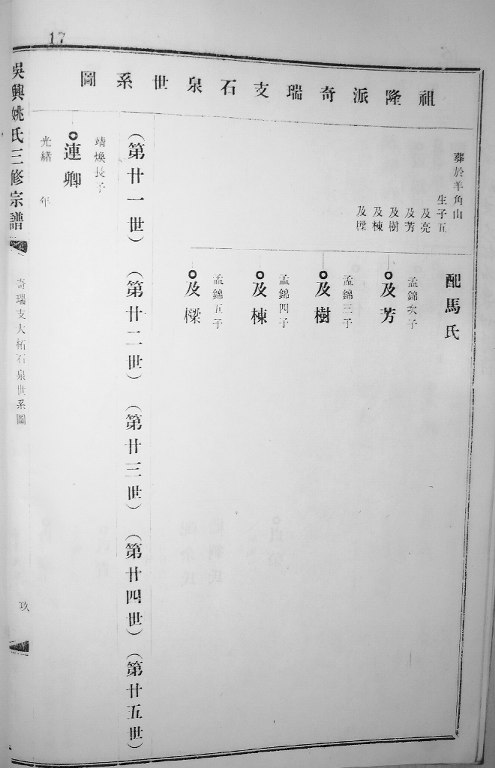 17
祖隆派奇瑞支石泉世系圖
葬於羊角山
生子五
及亮
及芳
及樹
及棟
及樑
配馬氏
孟錦次子
及芳
孟錦三子
及樹
孟錦四子
及棟
孟錦五子
及樑
(第廿一世) (第廿二世) (第廿三世) (第廿四世) (第廿五世)
靖煥長子
連卿
光緒 年
吳興姚氏三修宗譜
奇瑞支大柘石泉世系圖
玖